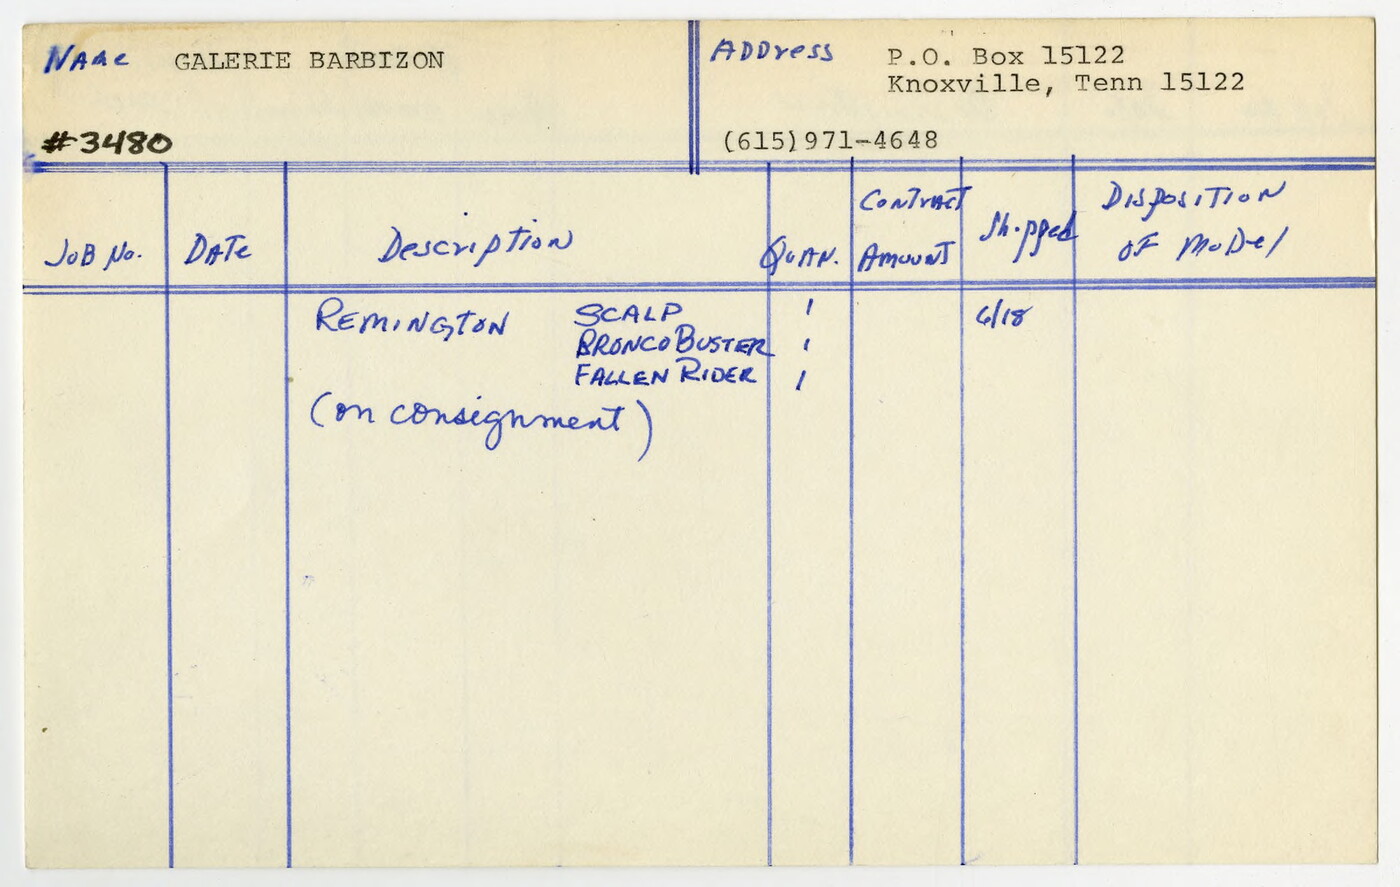 Name GALERIE BARBIZON
#3480
Address P.O. Box 15122
Knoxville, Tenn 15122
(615)971-4648
Job No. Date Description Quan. Contract Amount Shipped Disposition of Model
REMINGTON SCALP 1 6/18
BRONCO BUSTER 1
FALLEN RIDER 1
(on consignment)